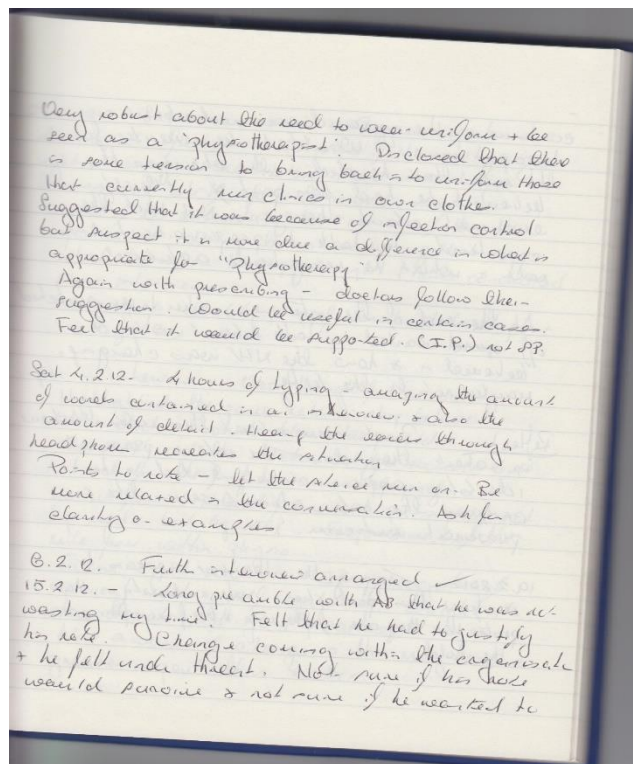 Very robust about the need to wear uniform + be
seen as a 'physiotherapist'. Disclosed that there
is some tension to bring back into uniform those
that currently run clinics in own clothes.
Suggested that it was because of infection control
but suspect it is more due a difference in what is
appropriate for "Physiotherapy"
Again with prescribing - doctors follow their
suggestion. Would be useful in certain cases.
Feel that it would be supported. (I.P.) not SP.
Sat 4.2.12. 4 hours of typing - amazing the amount
of words contained in an interview, + also the
amount of detail. Hearing the voices through
headphones recreates the situation
Points to note - let the silence run on. Be
more relaxed in the conversation. Ask for
clarity or examples
8.2.12. Further interview arranged ✓
15.2.12. - Long preamble with AB that he was not
wasting my time. Felt that he had to justify
his role. Change coming within the organisation
+ he felt under threat. Not sure if his role
would survive + not sure if he wanted to